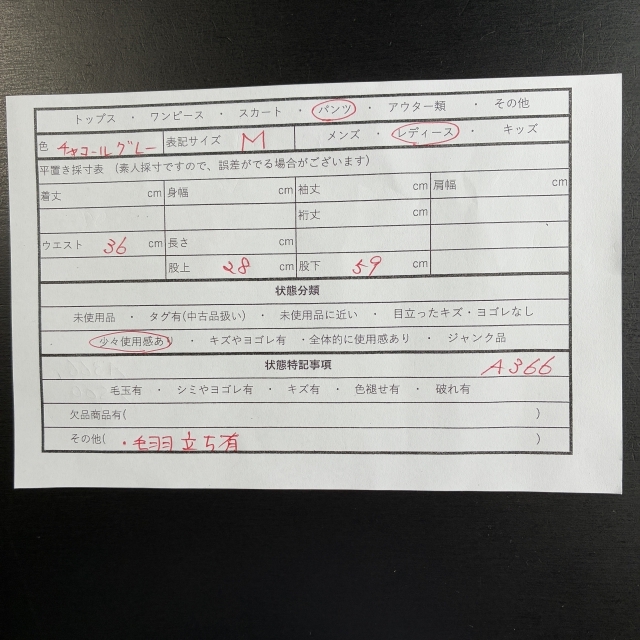 トップス ・ ワンピース ・ スカート ・ パンツ ・ アウター類 ・ その他
色 チャコールグレー 表記サイズ M メンズ ・ レディース ・ キッズ
平置き採寸表 (素人採寸ですので、誤差がでる場合がございます)
着丈 cm 身幅 cm 袖丈 cm 肩幅 cm
裄丈 cm
ウエスト 36 cm 長さ cm
股上 28 cm 股下 59 cm
状態分類
未使用品 ・ タグ有(中古品扱い) ・ 未使用品に近い ・ 目立ったキズ・ヨゴレなし
少々使用感あり ・ キズやヨゴレ有 ・全体的に使用感あり ・ ジャンク品
状態特記事項 A366
毛玉有 ・ シミやヨゴレ有 ・ キズ有 ・ 色褪せ有 ・ 破れ有
欠品商品有( )
その他( ・毛羽立ち有 )